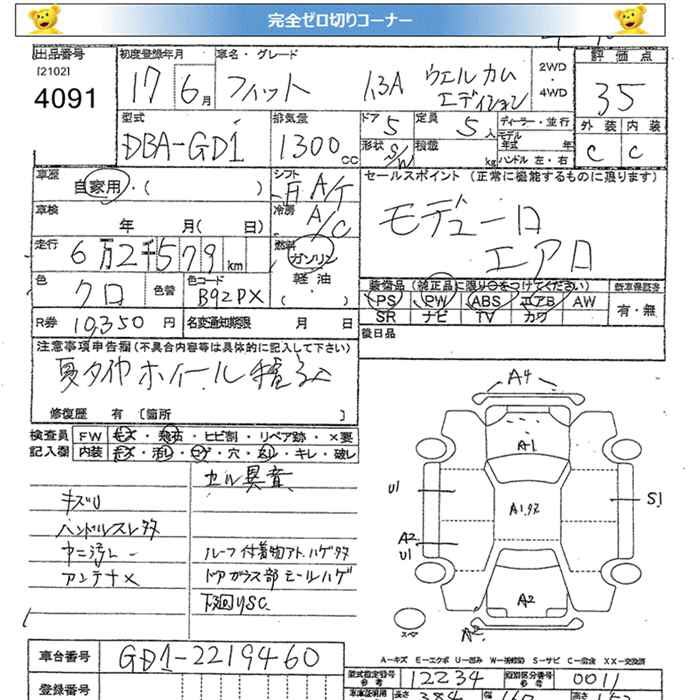 完全ゼロ切りコーナー
出品番号
[2102]
4091
初度登録年月
17 6月
車名・グレード
フィット 1.3A ウェルカム
エディション
2WD
・
4WD
評価点
3.5
外装 内装
C C
型式
DBA-GD1
排気量
1300cc
ドア 5
定員 5人
ディーラー・並行
形状 S/W
積載 kg
モデル
年式 年
ハンドル 左・右
車歴
自家用・( )
シフト
F A/T
セールスポイント (正常に機能するものに限ります)
モデューロ
エアロ
車検
年 月( 日)
冷房
A/C
走行
6万2千579km
燃料
ガンリン
軽油
・( )
色
クロ
色替
色コード
B92PX
装備品 (純正品に限り○をつけてください)
PS PW ABS エアB AW
SR ナビ TV カワ
新車保証書
有・無
R券 10,350円
名変通知期限 月 日
後日品
注意事項申告欄(不具合内容等は具体的に記入して下さい)
夏タイヤ ホイール 積込
修復歴 有 〔箇所 〕
検査員 FW キズ・飛石・ヒビ割・リペア跡・×要
記入欄 内装 キズ・汚れ・コゲ・穴・スレ・キレ・破レ
セル異音
キズU
ハンドルスレ
アンテナ×
ルーフ付着物アト、ハゲ
ドアガラス部モールハゲ
下回りSC
A4
A1
U1
A1
S1
A2
U1
A2
A2
スペア
A-キズ E-エクボ U-凹み W-補修跡 S-サビ C-腐食 XX-交換済
車台番号
GD1-2219460
型式指定番号
参考
12234
類別区分番号
参考
0011
登録番号
長さ 384